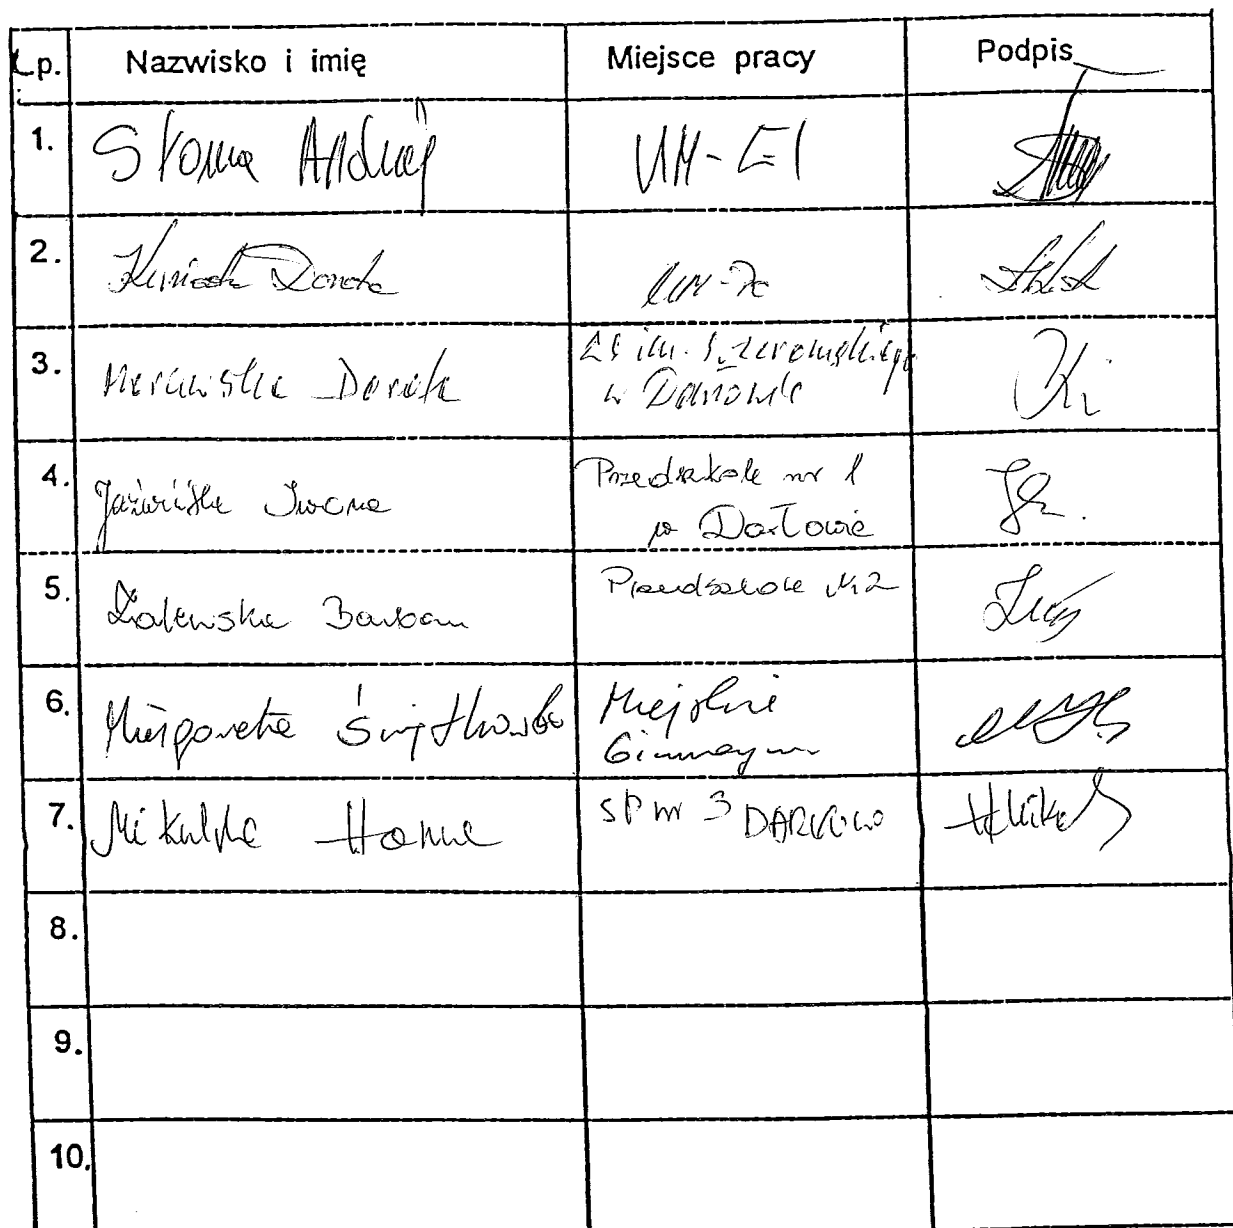 Lp. Nazwisko i imię Miejsce pracy Podpis
1. Słoma Andrzej UM-EI
2. Dorota UM-
3. Dorota ZS im. S. Żeromskiego
w Darłowie
4. Jaźwińska Iwona Przedszkole nr 1
w Darłowie
5. Zalewska Barbara Przedszkole Nr 2
6. Małgorzata Świątkowska Miejskie
Gimnazjum
7. Mikulska Hanna SP nr 3 DARŁOWO
8.
9.
10.